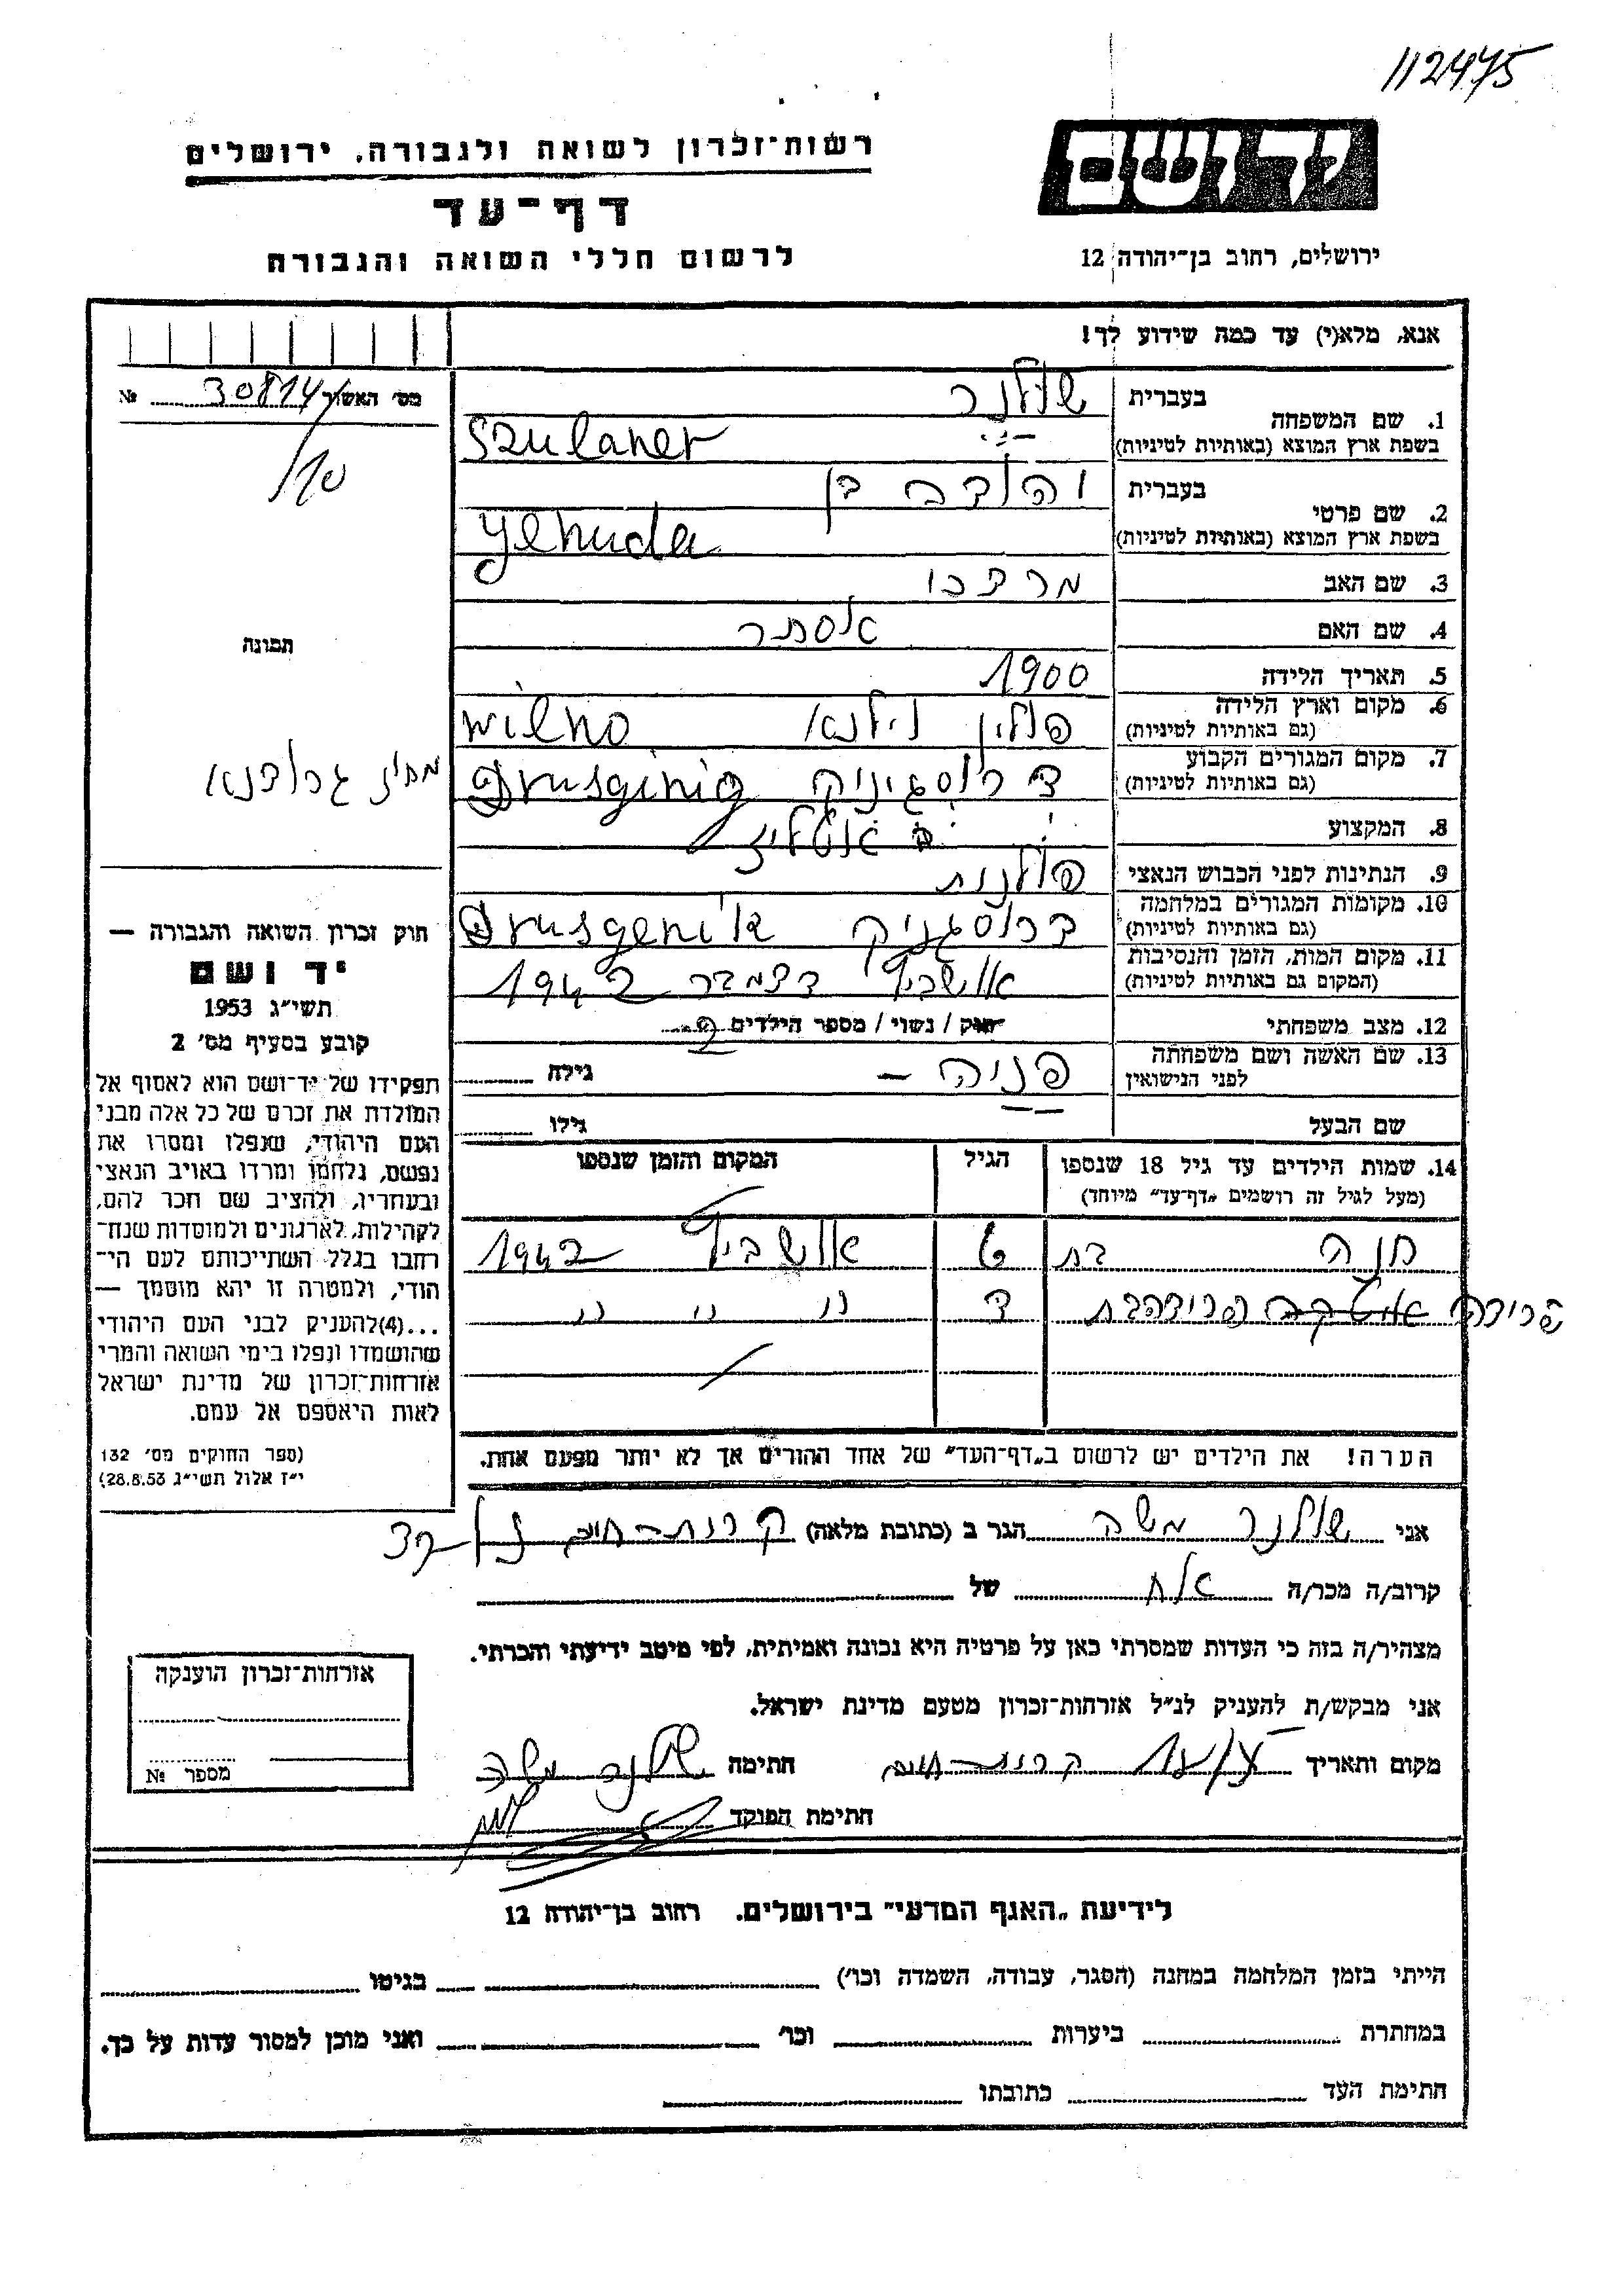 112475
יד ושם
רשות־זכרון לשואה ולגבורה, ירושלים
דף־עד
לרשום חללי השואה והגבורה
ירושלים, רחוב בן־יהודה 12
אנא, מלא(י) עד כמה שידוע לך!
מס' האשור 30814 №
/10
תמונה
מחוז גרודנא
1. שם המשפחה
בעברית שולנר
בשפת ארץ המוצא (באותיות לטיניות) Szulaner
2. שם פרטי
בעברית יהודה בן
בשפת ארץ המוצא (באותיות לטיניות) Yehuda
3. שם האב מרדכי
4. שם האם אסתר
5. תאריך הלידה 1900
6. מקום וארץ הלידה פולין וילנא Wilno
(גם באותיות לטיניות)
7. מקום המגורים הקבוע דרוסגיניק
(גם באותיות לטיניות)
8. המקצוע
9. הנתינות לפני הכבוש הנאצי פולנית
10. מקומות המגורים במלחמה דרוסגניק
(גם באותיות לטיניות)
11. מקום המות, הזמן והנסיבות אושביץ דצמבר 1942
(המקום גם באותיות לטיניות)
12. מצב משפחתי רווק / נשוי / מספר הילדים 2
13. שם האשה ושם משפחתה פניה – גילה
לפני הנישואין
שם הבעל גילו
14. שמות הילדים עד גיל 18 שנספו הגיל המקום והזמן שנספו
(מעל לגיל זה רושמים „דף־עד" מיוחד)
חנה בת 6 אושביץ 1942
פרידה ד " " "
הערה! את הילדים יש לרשום ב„דף־העד" של אחד ההורים אך לא יותר מפעם אחת.
חוק זכרון השואה והגבורה —
יד ושם
תשי"ג 1953
קובע בסעיף מס' 2
תפקידו של יד־ושם הוא לאסוף אל
המולדת את זכרם של כל אלה מבני
העם היהודי, שנפלו ומסרו את
נפשם, נלחמו ומרדו באויב הנאצי
ובעוזריו, ולהציב שם וזכר להם,
לקהילות, לארגונים ולמוסדות שנח־
רבו בגלל השתייכותם לעם הי־
הודי, ולמטרה זו יהא מוסמך —
...(4)להעניק לבני העם היהודי
שהושמדו ונפלו בימי השואה והמרי
אזרחות־זכרון של מדינת ישראל
לאות היאספם אל עמם.
(ספר החוקים מס' 132
י"ז אלול תשי"ג 28.8.53)
אני שולנר משה הגר ב (כתובת מלאה) קרית־חיים
קרוב/ה מכר/ה אח של
מצהיר/ה בזה כי העדות שמסרתי כאן על פרטיה היא נכונה ואמיתית, לפי מיטב ידיעתי והכרתי.
אני מבקש/ת להעניק לנ"ל אזרחות־זכרון מטעם מדינת ישראל.
מקום ותאריך קרית־חיים חתימה שולנר משה
חתימת הפוקד
אזרחות־זכרון הוענקה
מספר №
לידיעת „האגף המדעי" בירושלים. רחוב בן־יהודה 12
הייתי בזמן המלחמה במחנה (הסגר, עבודה, השמדה וכו') בגיטו
במחתרת ביערות וכו' ואני מוכן למסור עדות על כך.
חתימת העד כתובתו